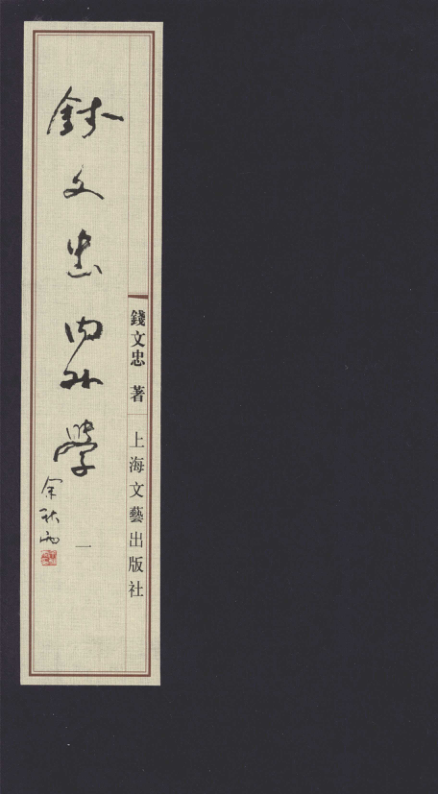 錢文忠內外學
余秋雨
一
錢文忠 著
上海文藝出版社